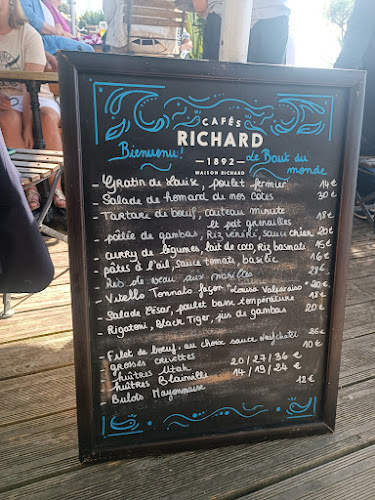 CAFÉS
RICHARD
1892
MAISON RICHARD
Bienvenu!
Le Bout du
monde
- Gratin de Louise, poulet fermier 14€
- Salade de homard de nos côtes 30€
- Tartare de boeuf, couteau minute 18€
et pet grenailles
- poêlée de gambas, Riz vénéré, sauce chien 20€
- curry de légumes, lait de coco, Riz basmati 15€
- pâtes à l'ail, sauce tomate, basilic 16€
- Ris de veau aux morilles 28€
- Vitello Tonnato façon "Louisa Valparaiso" 20€
- Salade César, poulet basse température 18€
- Rigatoni, Black Tiger, jus de gambas 20€
- Filet de boeuf, au choix sauce 26€
- grosses crevettes 10€
- huîtres Utah 20/27/36€
- huîtres Blainville 14/19/24€
- Bulots Mayonnaise 12€